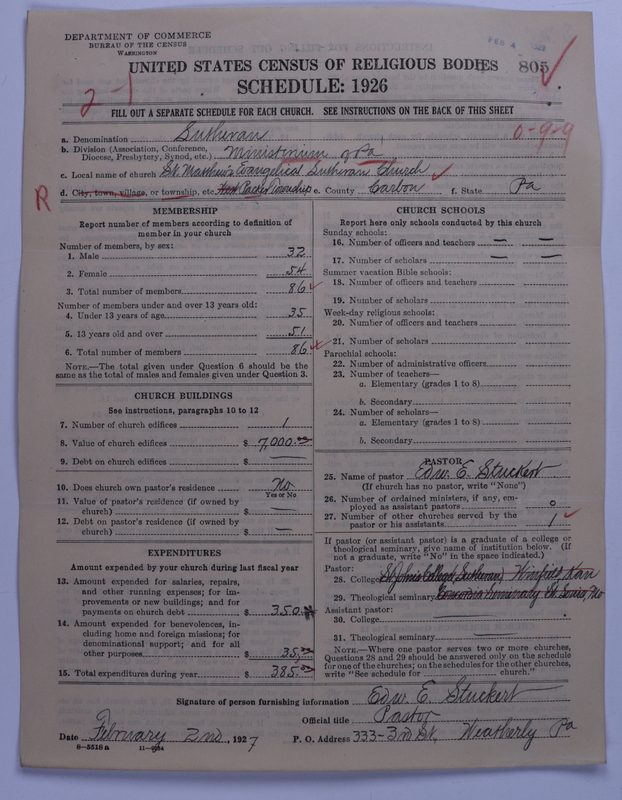 DEPARTMENT OF COMMERCE
BUREAU OF THE CENSUS
WASHINGTON
FEB 4
UNITED STATES CENSUS OF RELIGIOUS BODIES 805
SCHEDULE: 1926
2-1
FILL OUT A SEPARATE SCHEDULE FOR EACH CHURCH. SEE INSTRUCTIONS ON THE BACK OF THIS SHEET
0-9-9
a. Denomination Lutheran
b. Division (Association, Conference, Diocese, Presbytery, Synod, etc.) Ministerium of Pa
c. Local name of church St. Matthew's Evangelical Lutheran Church
R
d. City, town, village, or township, etc. Packer Township e. County Carbon f. State Pa
MEMBERSHIP
Report number of members according to definition of
member in your church
Number of members, by sex:
1. Male 32
2. Female 54
3. Total number of members 86
Number of members under and over 13 years old:
4. Under 13 years of age 35
5. 13 years old and over 51
6. Total number of members 86
NOTE.—The total given under Question 6 should be
same as the total of males and females given under Question 3.
CHURCH BUILDINGS
See instructions, paragraphs 10 to 12
7. Number of church edifices 1
8. Value of church edifices $ 7,000.00
9. Debt on church edifices $ —
10. Does church own pastor's residence No
Yes or No
11. Value of pastor's residence (if owned by
church) $ —
12. Debt on pastor's residence (if owned by
church) $ —
EXPENDITURES
Amount expended by your church during last fiscal year
13. Amount expended for salaries, repairs,
and other running expenses; for im-
provements or new buildings; and for
payments on church debt $ 350.00
14. Amount expended for benevolences, in-
cluding home and foreign missions; for
denominational support; and for all
other purposes $ 35.00
15. Total expenditures during year $ 385.00
CHURCH SCHOOLS
Report here only schools conducted by this church
Sunday schools:
16. Number of officers and teachers — —
17. Number of scholars — —
Summer vacation Bible schools:
18. Number of officers and teachers
19. Number of scholars
Week-day religious schools:
20. Number of officers and teachers
21. Number of scholars
Parochial schools:
22. Number of administrative officers
23. Number of teachers—
a. Elementary (grades 1 to 8)
b. Secondary
24. Number of scholars—
a. Elementary (grades 1 to 8)
b. Secondary
PASTOR
25. Name of pastor Edw. E. Stuckert
(If church has no pastor, write "None")
26. Number of ordained ministers, if any, em-
ployed as assistant pastors 0
27. Number of other churches served by the
pastor or his assistants 1
If pastor (or assistant pastor) is a graduate of a college or
theological seminary, give name of institution below. (If
not a graduate, write "No" in the space indicated.)
Pastor:
28. College St. Johns College (Lutheran) Winfield, Kan
29. Theological seminary Concordia Seminary St. Louis, Mo
Assistant pastor:
30. College
31. Theological seminary
NOTE.—Where one pastor serves two or more churches,
Questions 28 and 29 should be answered only on the schedule
for one of the churches; on the schedules for the other churches,
write "See schedule for church."
Signature of person furnishing information Edw. E. Stuckert
Official title Pastor
Date February 2nd, 1927 P. O. Address 333-3rd St., Weatherly Pa
8-5518a